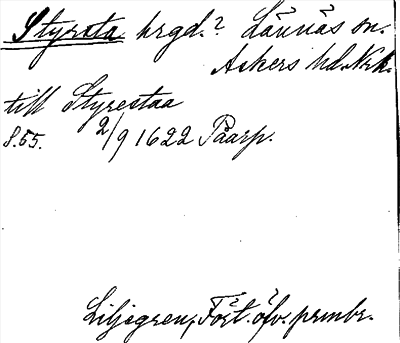 Styrsta hrgd.? Lännäs sn.
Askers hd. Nrk.
till Styrestaa
S. 65. 2/9 1622 Påarp.
Liljegren, Fört. öfv. prmbr.